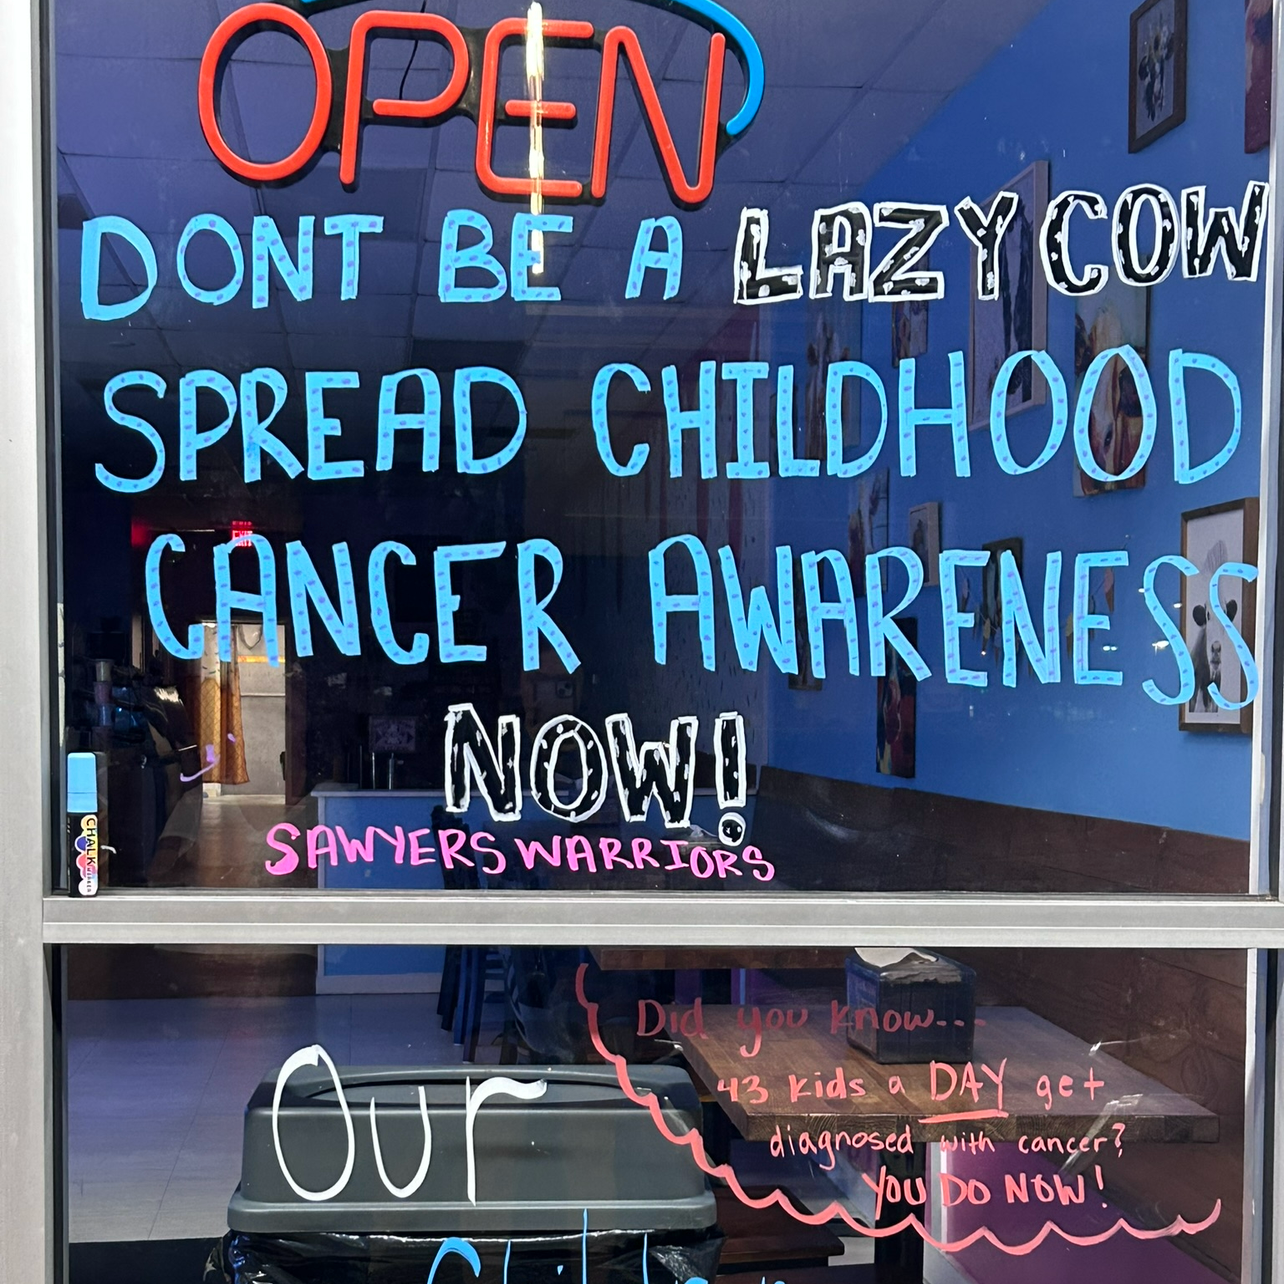 OPEN
DONT BE A LAZY COW
SPREAD CHILDHOOD
CANCER AWARENESS
NOW!
SAWYERS WARRIORS
CHALK
EXIT
Did you know...
43 kids a DAY get
diagnosed with cancer?
YOU DO NOW!
Our